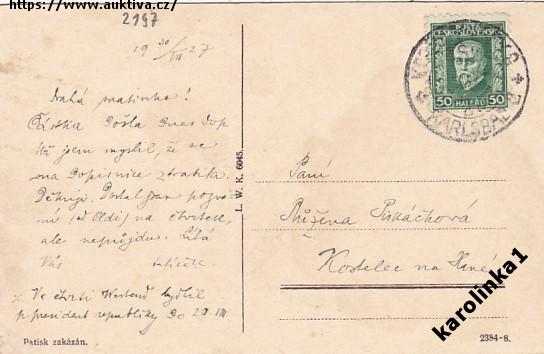 https://www.auktiva.cz/
2197
19 30/VII 27
Drahá matinko!
Částka došla Dnes
jsem myslil, že se
ona Dopisnice ztratila.
Děkuji. Dostal jsem
(od Oldi) na čtvrtek,
ale nepůjdu. Líbá
Vás
Ve čtvrti Westend bydlil
president republiky Do 20.VII
Patisk zakázán.
L. W. K. 6045.
POŠTA
ČESKOSLOVENSKÁ
50 HALÉŘŮ 50
KARLSBAD
Paní
Růžena
Kostelec na Hané
2384-8.
karolinka1